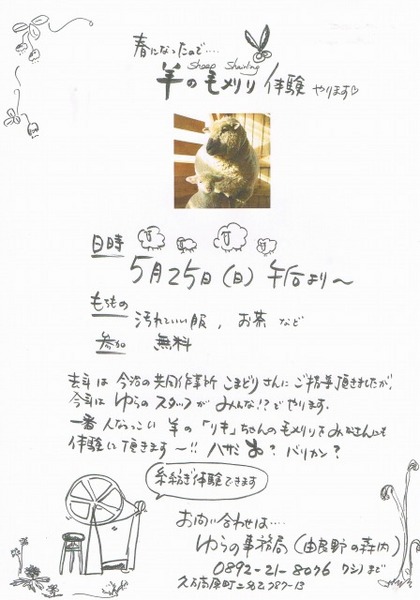 春になったので....
Sheep Shearing
羊の毛メリリ体験 やります♡
日時
5月25日（日）午后より〜
もちもの
汚れていい服、お茶 など
参加 無料
去年は 今治の共同作業所 こまどりさんに ご指導頂きましたが、
今年は ゆらのスタッフが みんな!?でやります。
一番 人なつっこい 羊の「りき」ちゃんの毛メリりをみなさんにも
体験して頂きます〜!! ハサミ ? バリカン?
糸紡ぎ体験できます
お問い合わせは....
ゆらの事務局（由良野の森内）
0892-21-8076 ワシノまで
久万高原町二名乙787-13